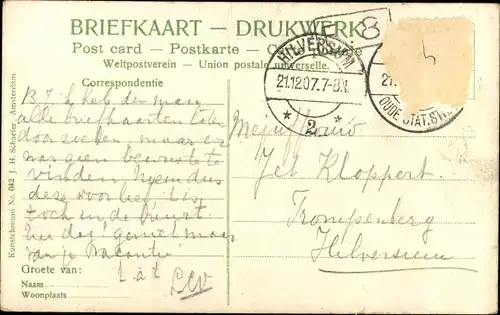 BRIEFKAART – DRUKWERK
Post card – Postkarte –
Weltpostverein – Union postale universelle.
8
HILVERSUM
21.12.07.7-8V.
* 2 *
OUDE STAT.
4
Correspondentie
B. J. ik heb den man
alle briefkaarten laten
doorzoeken, maar er
was geen bewuste te
vinden. Neem dus
deze voor lief. Ligt
toch in de buurt.
hoe des! geniet maar
van je vacantie
Groete van:
Lev
Naam
Woonplaats
Kunstchromo No. 042 J. H. Schaefer, Amsterdam.
Mejuffrouw
Jet Kloppert.
Trompenberg
Hilversum